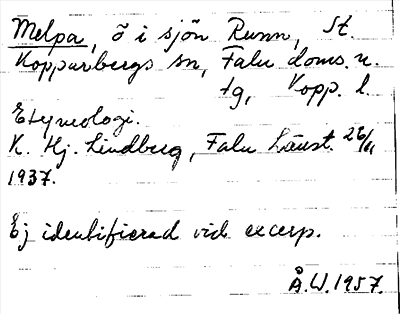 Melpa, ö i sjön Runn, St.
Kopparbergs sn, Falu doms. o.
tg, Kopp. l.
Etymologi.
K. Hj. Lindberg, Falu Länst. 26/11
1937.
Ej identifierad vid excerp.
Å.W.1957.